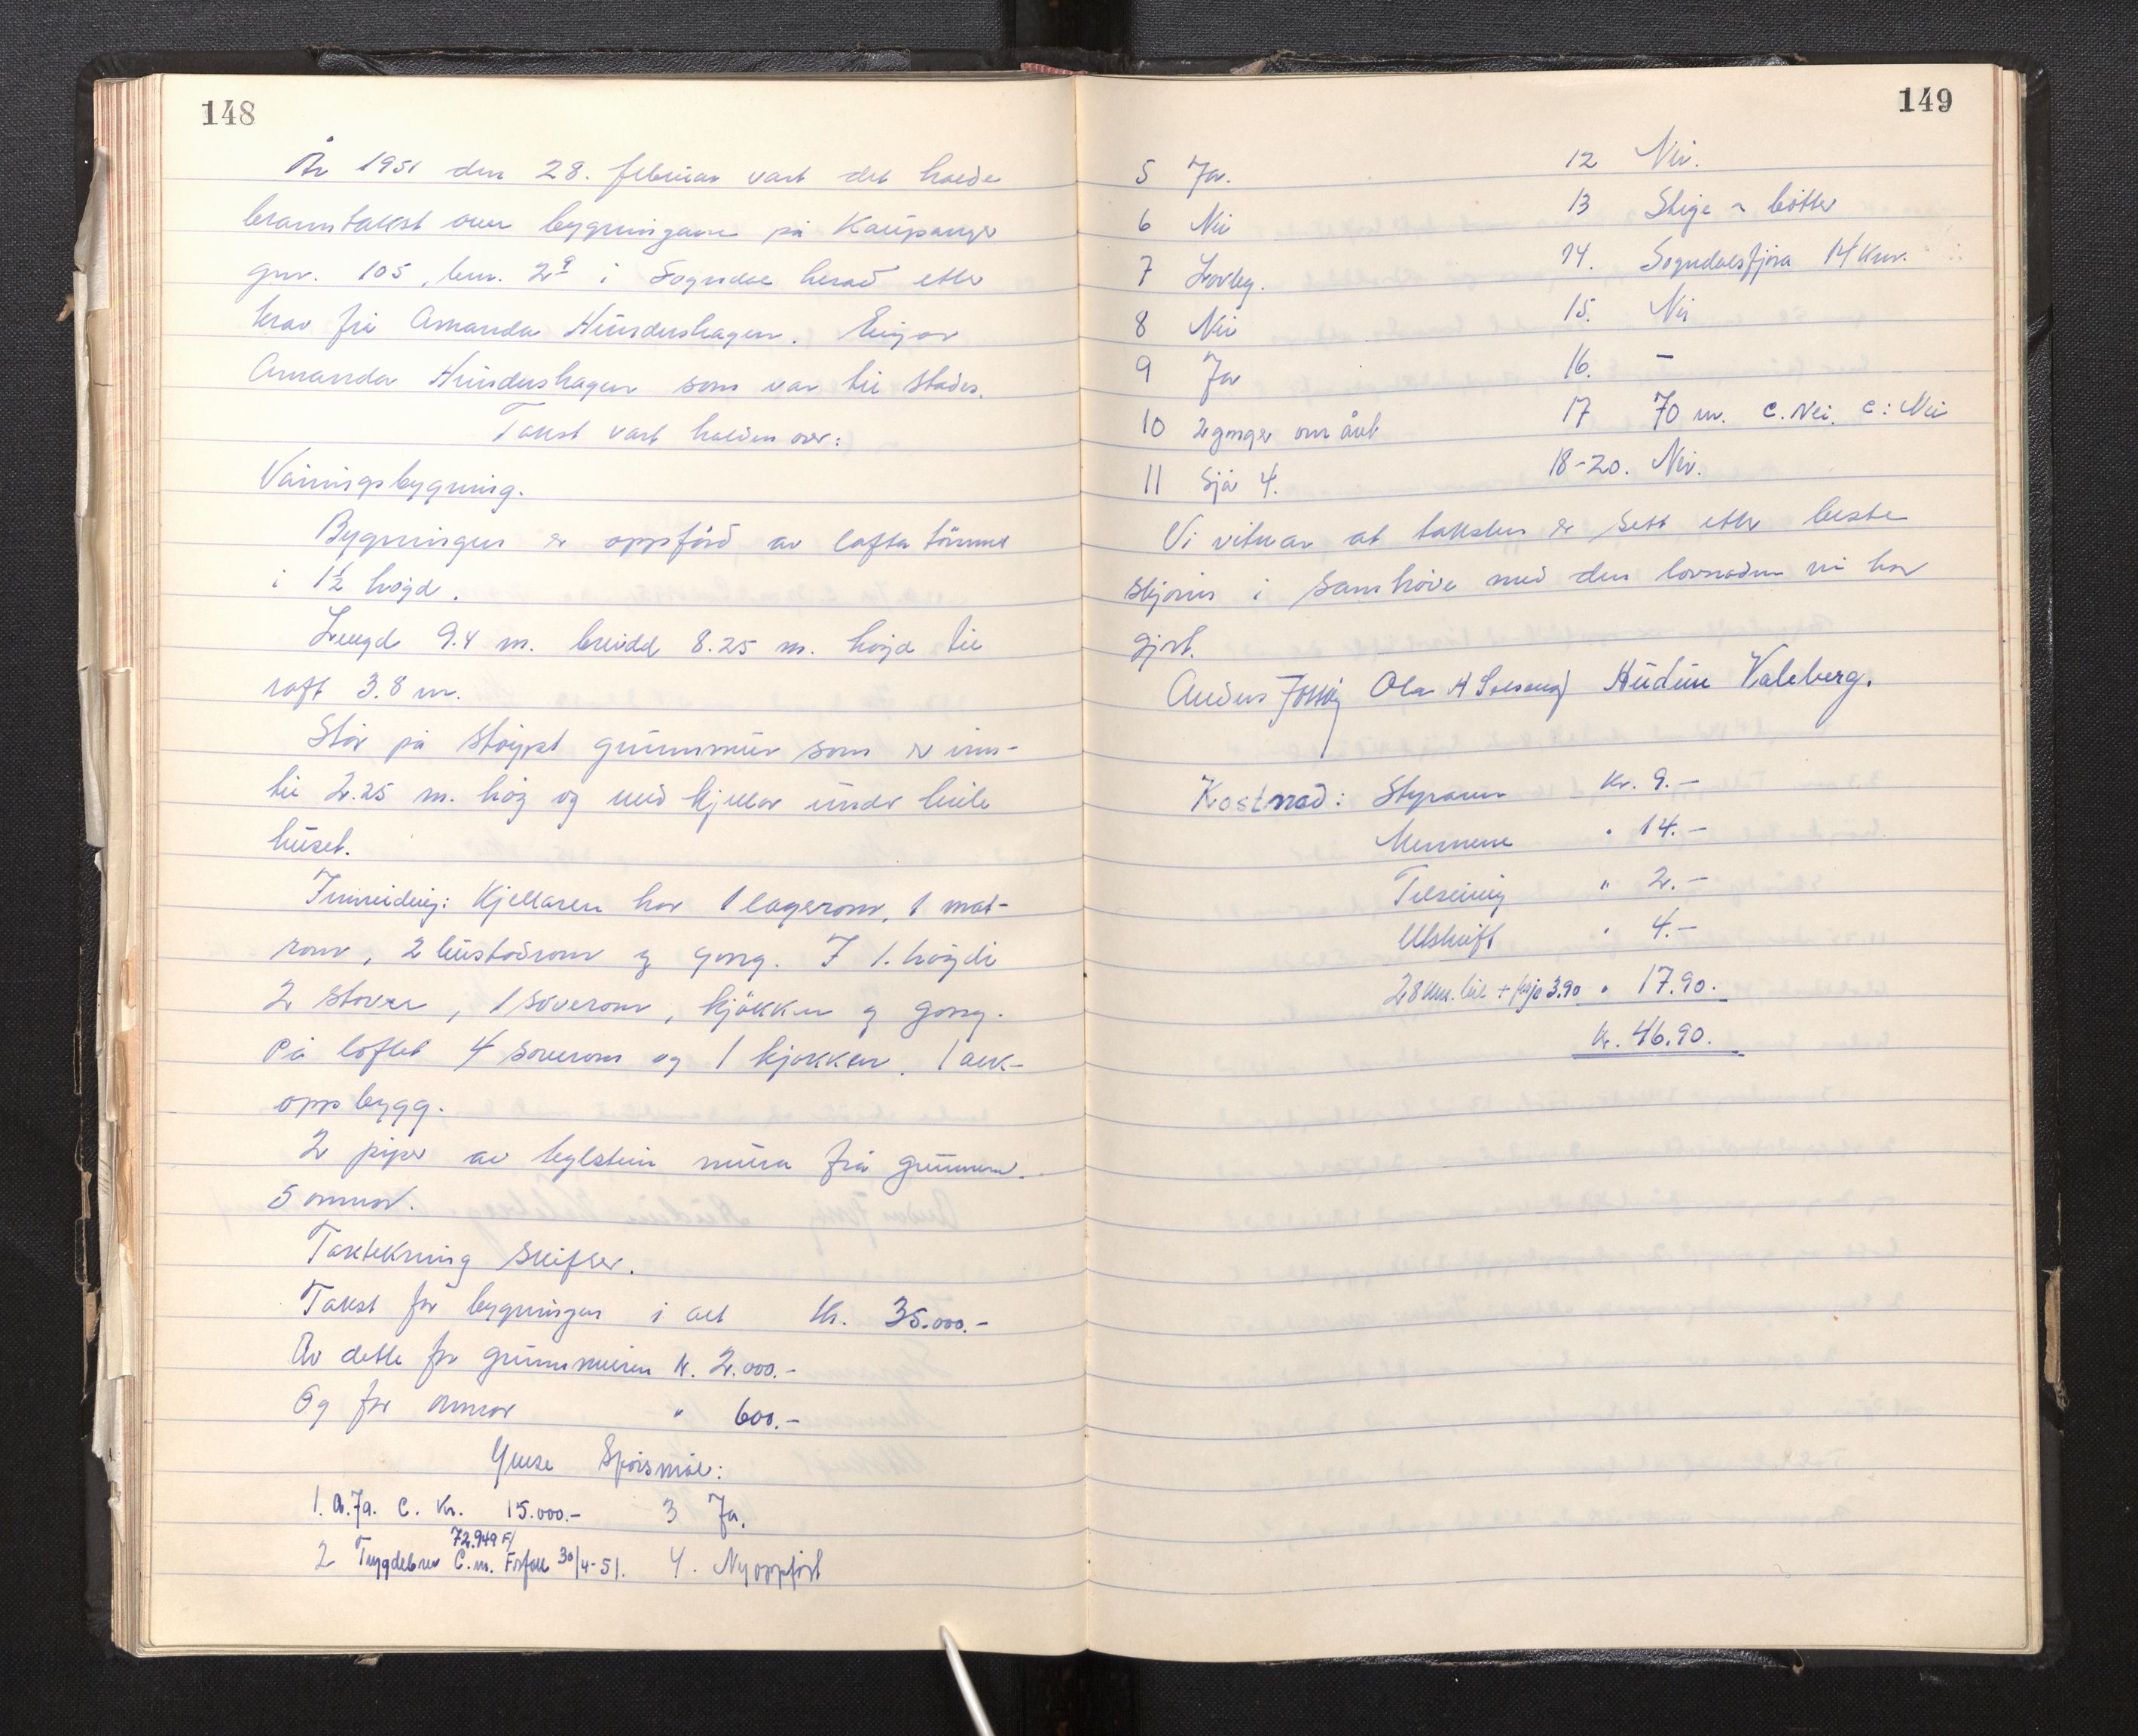 148
År 1951 den 28. februar vart det halde
branntakst over bygningane på Kaupanger
gnr. 105, bnr. 29 i Sogndal herad etter
krav frå Amanda Hundershagen. Eigar
Amanda Hundershagen som var til stades.
Takst vart halden over:
Våningsbygning.
Bygningen er oppförd av lafta tömmer
i 1½ högd.
Lengd 9.4 m. breidd 8.25 m. högd til
raft 3.8 m.
Står på stöypt grunnmur som er inn-
til 2.25 m. hög og med kjellar under heile
huset.
Innreiding: Kjellaren har 1 lagerom, 1 mat-
rom, 2 bustadrom og gong. I 1. högdi
2 stover, 1 soverom, kjökken og gong.
På loftet 4 soverom og 1 kjökken. 1 ark-
oppbygg.
2 piper av teglstein mura frå grunnen.
5 omnar.
Taktekning skifer.
Takst for bygningen i alt kr. 35.000.-
Av dette for grunnmuren kr. 2.000.-
Og for omnar " 600.-
Ymse Spörsmål:
1. a. Ja. c. Kr. 15.000.- 3 Ja.
72.949 F/
2 Trygdebrev C.m. Forfall 30/4-51. 4. Nyoppfört
149
5 Ja. 12 Nei.
6 Nei 13 Stige & bötter
7 Lovleg. 14. Sogndalsfjöra 14 km.
8 Nei 15. Nei
9 Ja 16. –
10 2 gonger om året 17 70 m. c. Nei. e: Nei
11 Sjå 4. 18-20. Nei.
Vi vitnar at taksten er sett etter beste
skjönn i samhöve med den lovnaden vi har
gjort.
Ola H Hudun Valeberg.
Kostnad: Styraren kr. 9.-
Mennene " 14.-
Tilseiing " 2.-
Utskrift " 4.-
28 km. bil + ferje 3.90 " 17.90.
Kr. 46.90.